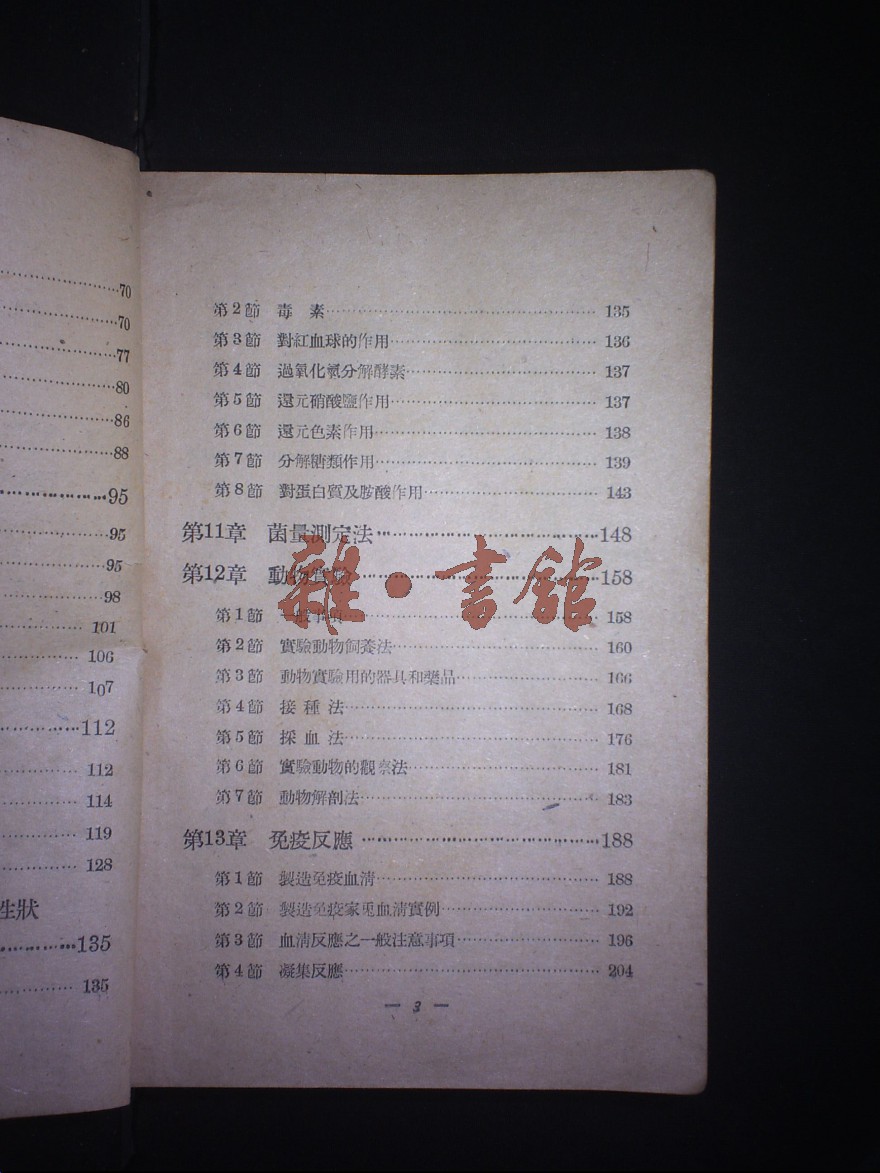 70
70
77
80
86
88
95
95
95
98
101
106
107
112
112
114
119
128
生狀
135
135
第2節 毒 素 135
第3節 對紅血球的作用 136
第4節 過氧化氫分解酵素 137
第5節 還元硝酸鹽作用 137
第6節 還元色素作用 138
第7節 分解糖類作用 139
第8節 對蛋白質及胺酸作用 143
第11章 菌量測定法 148
第12章 動物實驗 158
雜·書館
第1節 一般事項 158
第2節 實驗動物飼養法 160
第3節 動物實驗用的器具和藥品 166
第4節 接種法 168
第5節 採血法 176
第6節 實驗動物的觀察法 181
第7節 動物解剖法 183
第13章 免疫反應 188
第1節 製造免疫血清 188
第2節 製造免疫家兎血清實例 192
第3節 血清反應之一般注意事項 196
第4節 凝集反應 204
— 3 —